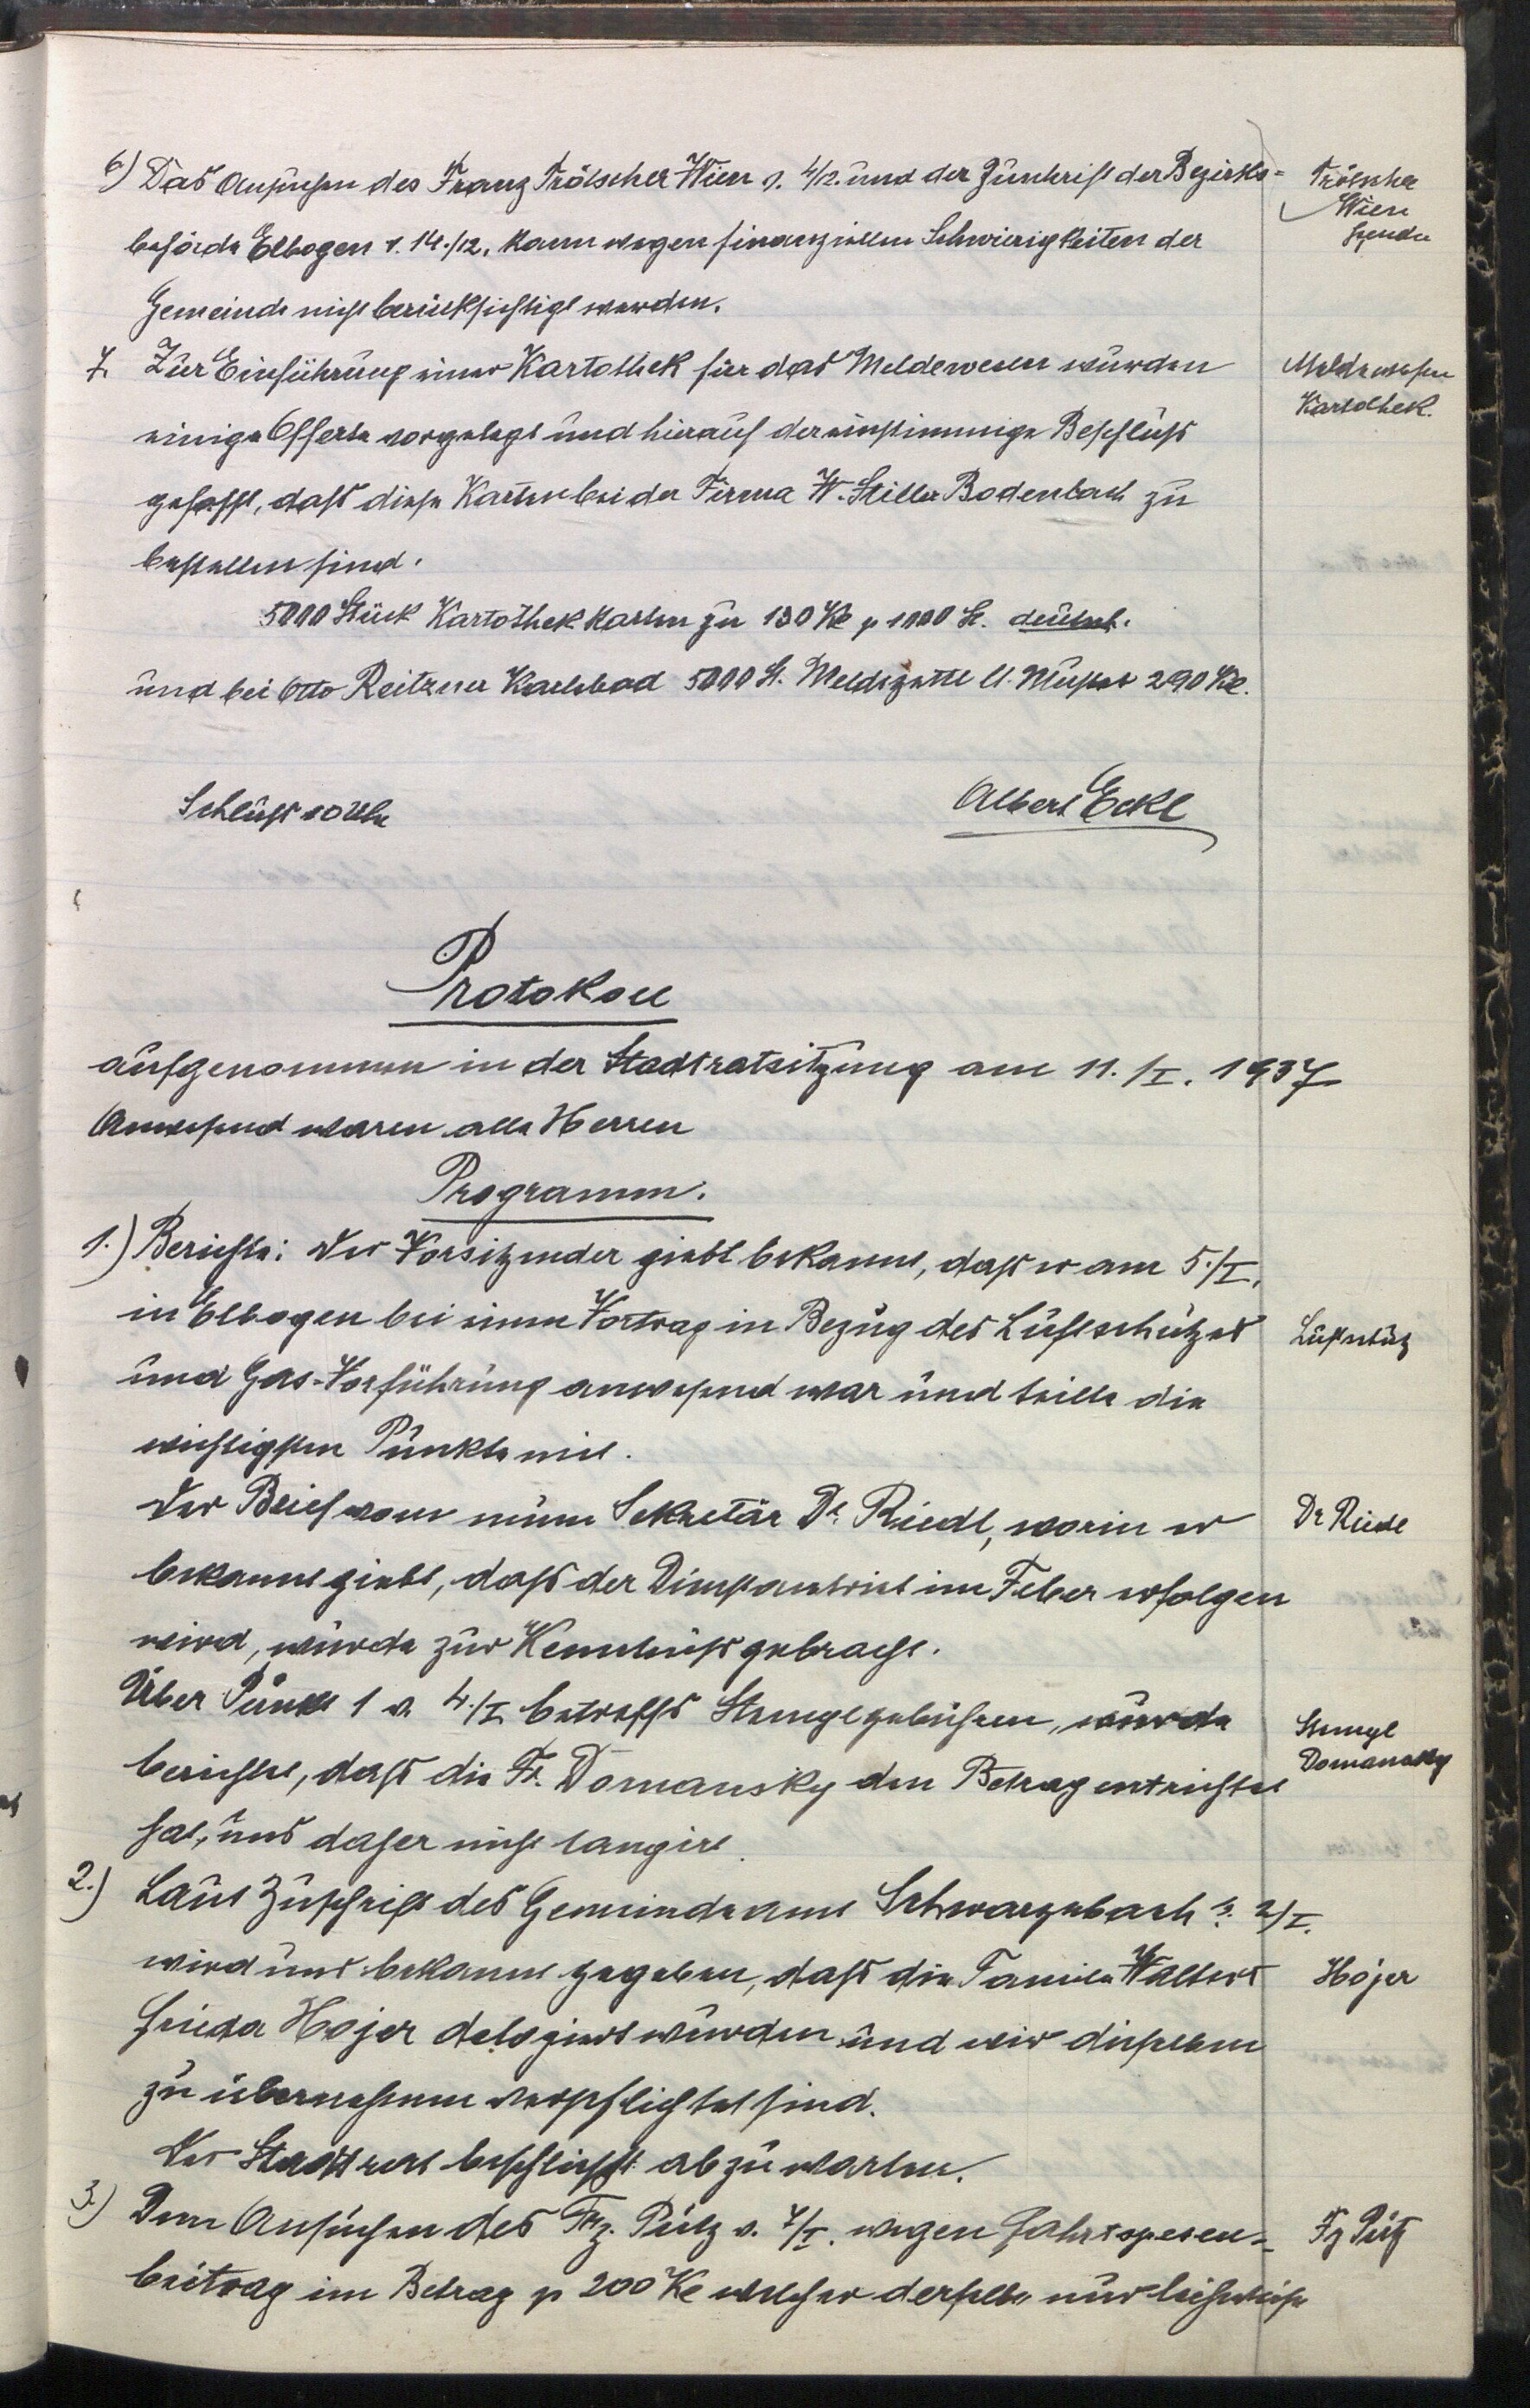 6.) Das Ansuchen des Franz Trötscher Wien v. 4/12. und der Zuschrift der Bezirks-
behörde Elbogen v. 14./12. kann wegen finanziellen Schwierigkeiten der
Gemeinde nicht berücksichtigt werden.
Trötscher
Wien
Spende
7. Zur Einführung einer Kartothek für das Meldewesen wurden
einige Offerte vorgelegt und hierauf der einstimmige Beschluß
gefasst, daß diese Karten bei der Firma W. Stiller Bodenbach zu
bestellen sind.
Meldewesen
Kartothek.
5000 Stück Kartothekkarten zu 130 Kč p 1000 St. deutsch.
und bei Otto Reitzner Karlsbad 5000 St. Meldzettel lt. Muster 290 Kč.
Schluß 10 Uhr
Albert Eckl
Protokoll
aufgenommen in der Stadtratsitzung am 11./I. 1937
Anwesend waren alle Herren
Programm.
1.) Berichte: Der Vorsitzender giebt bekannt, daß er am 5./I.
in Elbogen bei einem Vortrag in Bezug des Luftschutzes
und Gas-Vorführung anwesend war und teilte die
wichtigsten Punkte mit.
Luftschutz
Der Brief vom neuen Sekretär Dr. Riedl, worin er
bekannt giebt, daß der Dienstantritt im Feber erfolgen
wird, wurde zur Kenntniß gebracht.
Dr Riedl
Über Punkt 1 v. 4./I. betreffs Stempelgebühren, wurde
berichtet, daß die Fr. Domansky den Betrag entrichtet
hat, uns daher nicht tangirt.
Stempel
Domansky
2.) Laut Zuschrift des Gemeindeamt Schwarzenbach v. 2/I.
wird uns bekannt gegeben, daß die Familie Walbert
Frieda Hojer delogiert wurden und wir dieselben
zu übernehmen verpflichtet sind.
Der Stadtrat beschließt abzuwarten.
Hojer
3.) Dem Ansuchen des Frz. Pütz v. 7/I. wegen Fahrtspesen-
beitrag im Betrag p 200 Kč welcher derselbe nur leihweise
Fz Pütz